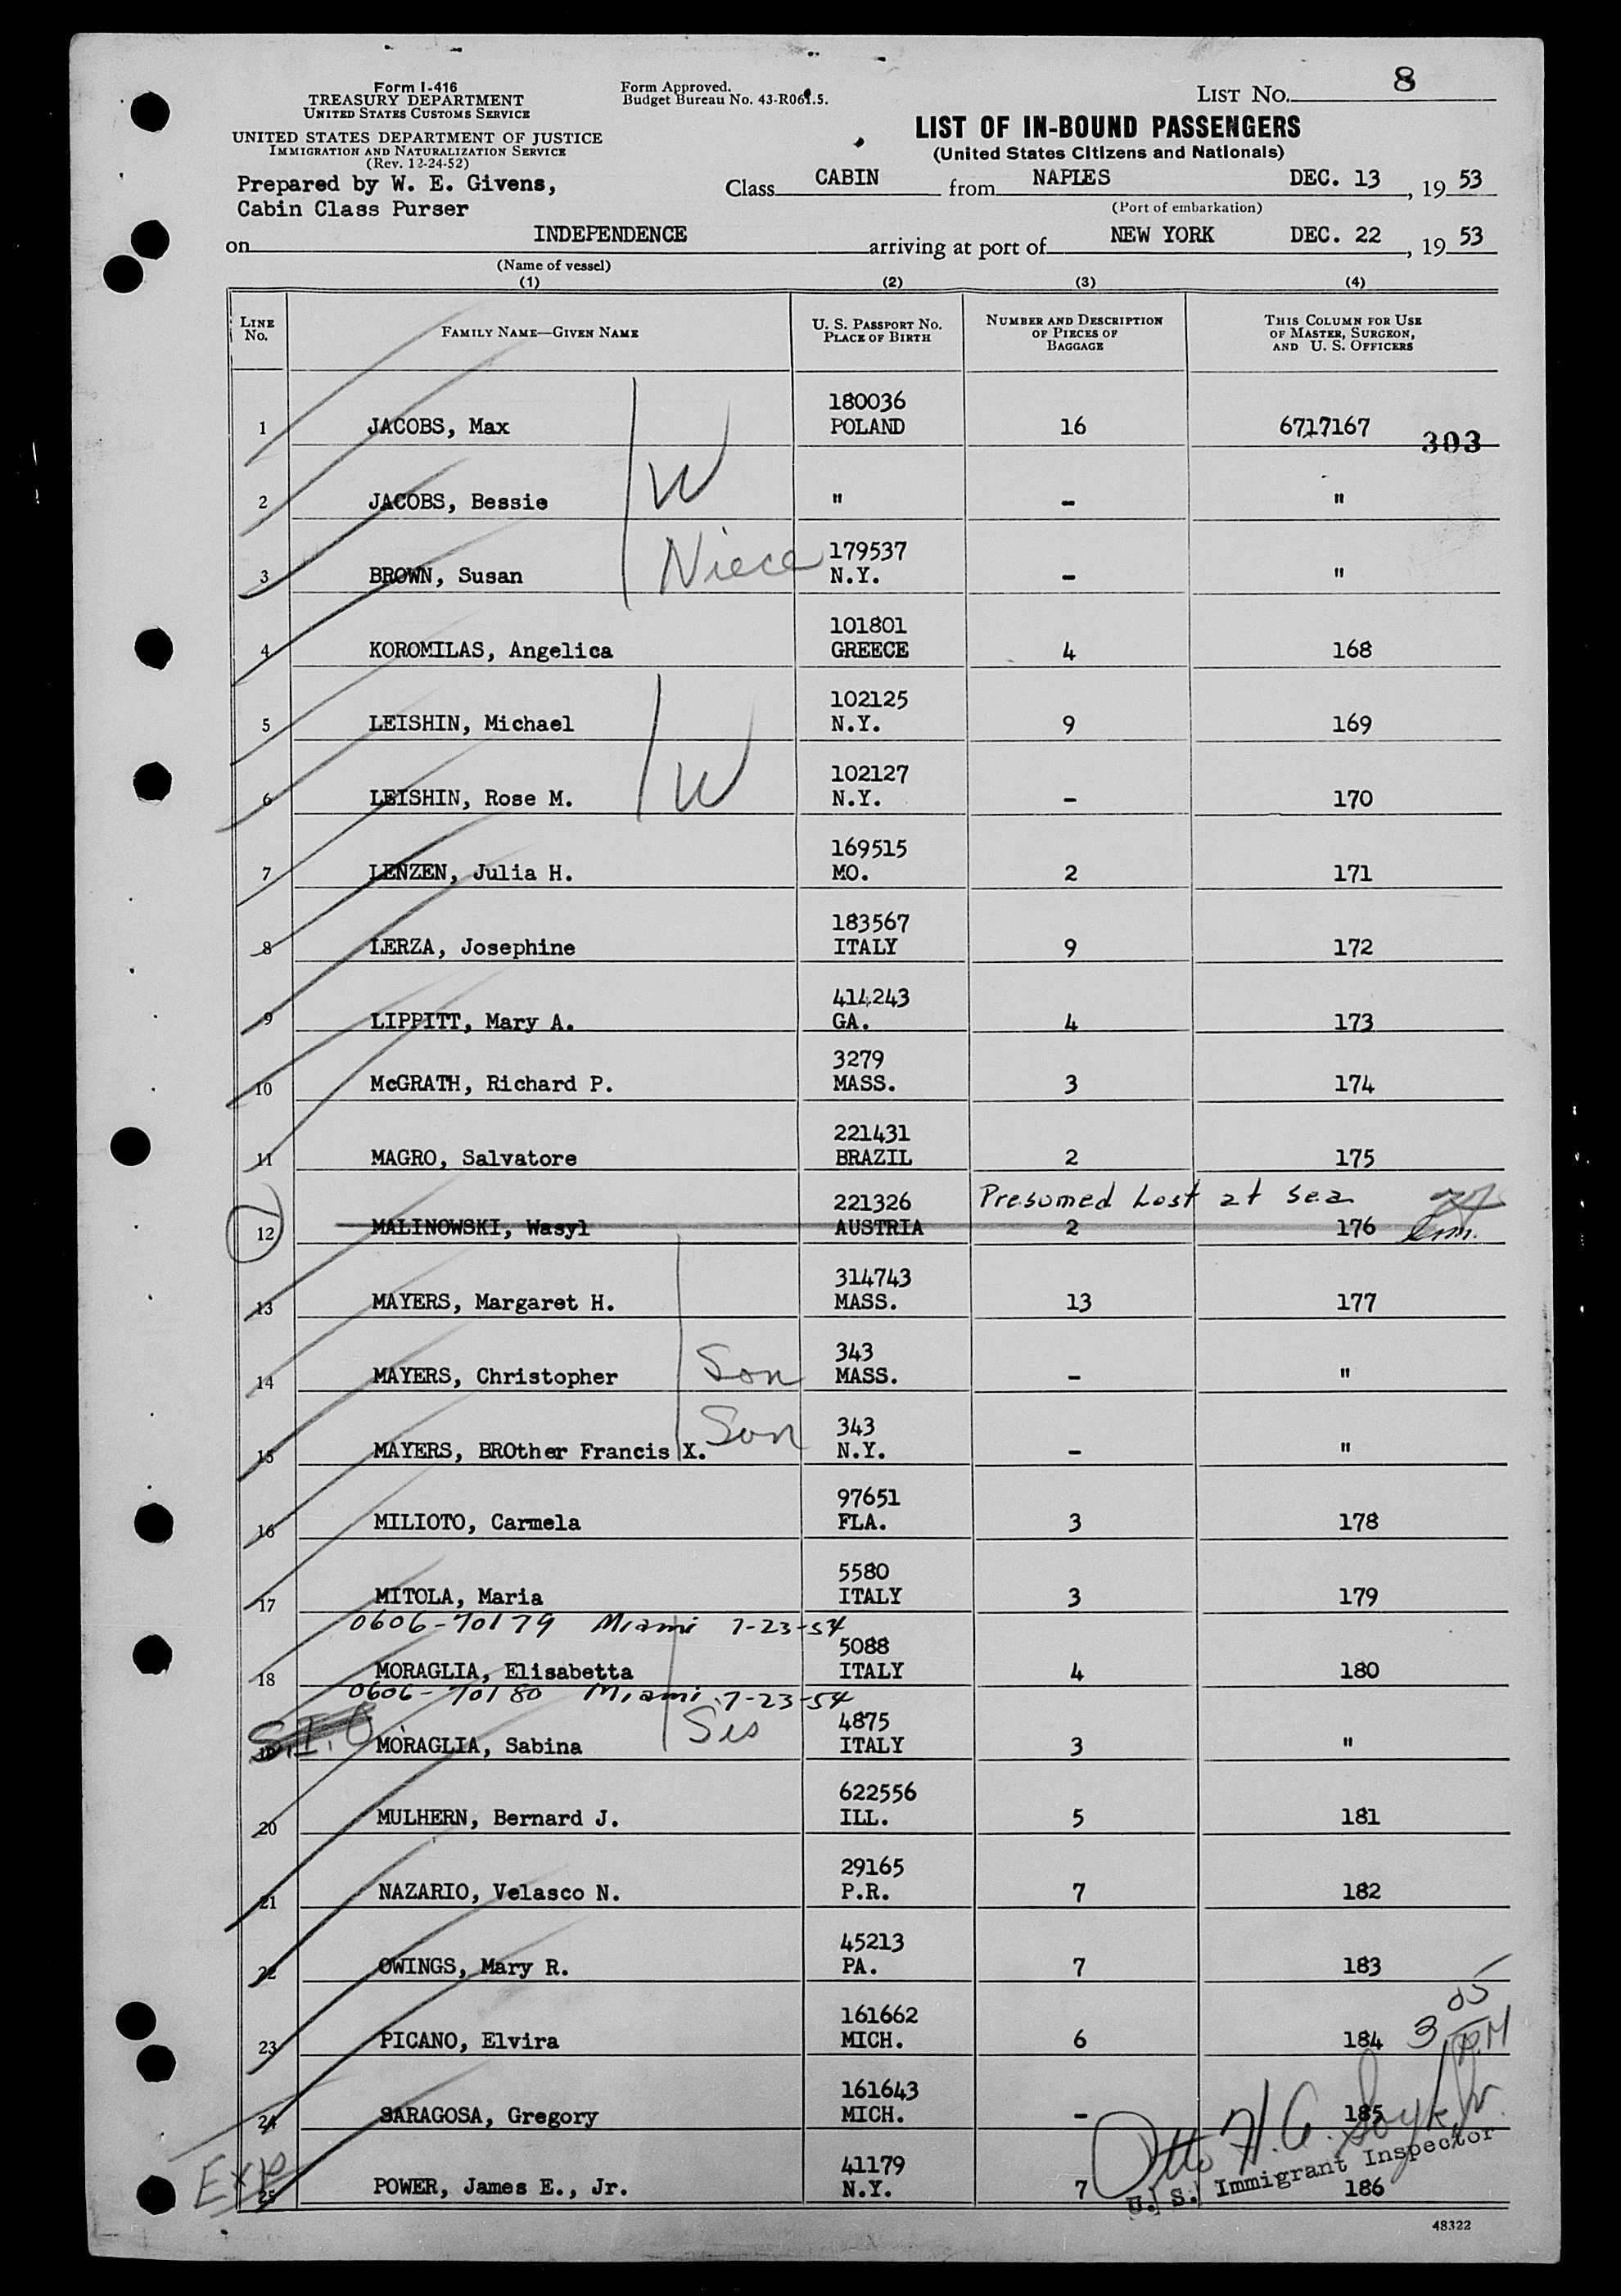 Form I-416
TREASURY DEPARTMENT
UNITED STATES CUSTOMS SERVICE
UNITED STATES DEPARTMENT OF JUSTICE
IMMIGRATION AND NATURALIZATION SERVICE
(Rev. 12-24-52)
Form Approved.
Budget Bureau No. 43-R061.5.
LIST NO. 8
LIST OF IN-BOUND PASSENGERS
(United States Citizens and Nationals)
Prepared by W. E. Givens,
Cabin Class Purser
Class CABIN from NAPLES DEC. 13, 19 53
(Port of embarkation)
on INDEPENDENCE arriving at port of NEW YORK DEC. 22, 19 53
(Name of vessel)
(1) (2) (3) (4)
LINE No. FAMILY NAME—GIVEN NAME U. S. PASSPORT NO. PLACE OF BIRTH NUMBER AND DESCRIPTION OF PIECES OF BAGGAGE THIS COLUMN FOR USE OF MASTER, SURGEON, AND U. S. OFFICERS
180036
1 JACOBS, Max POLAND 16 6717167 303
2 JACOBS, Bessie W " - "
179537
3 BROWN, Susan Niece N.Y. - "
101801
4 KOROMILAS, Angelica GREECE 4 168
102125
5 LEISHIN, Michael N.Y. 9 169
102127
6 LEISHIN, Rose M. W N.Y. - 170
169515
7 LENZEN, Julia H. MO. 2 171
183567
8 LERZA, Josephine ITALY 9 172
414243
9 LIPPITT, Mary A. GA. 4 173
3279
10 McGRATH, Richard P. MASS. 3 174
221431
11 MAGRO, Salvatore BRAZIL 2 175
221326 Presumed Lost at Sea
12 MALINOWSKI, Wasyl AUSTRIA 2 176
314743
13 MAYERS, Margaret H. MASS. 13 177
343
14 MAYERS, Christopher Son MASS. - "
343
15 MAYERS, BROther Francis X. Son N.Y. - "
97651
16 MILIOTO, Carmela FLA. 3 178
5580
17 MITOLA, Maria ITALY 3 179
0606-70179 Miami 7-23-54
5088
18 MORAGLIA, Elisabetta ITALY 4 180
0606-70180 Miami 7-23-54
4875
S.I.O MORAGLIA, Sabina Sis ITALY 3 "
622556
20 MULHERN, Bernard J. ILL. 5 181
29165
21 NAZARIO, Velasco N. P.R. 7 182
45213
22 OWINGS, Mary R. PA. 7 183
161662
23 PICANO, Elvira MICH. 6 184 3 05 P.M
161643
24 SARAGOSA, Gregory MICH. - 185
Otto H. G.
U. S. Immigrant Inspector
Exp
41179
25 POWER, James E., Jr. N.Y. 7 186
48322